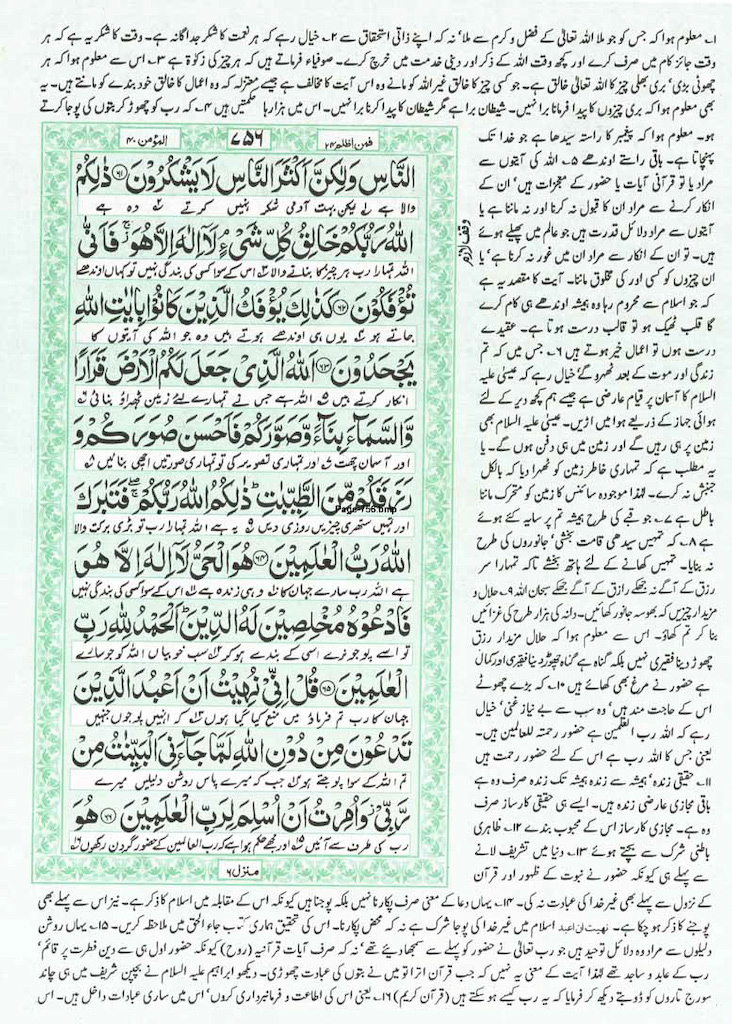 ۱۔ معلوم ہوا کہ جس کو جو ملا اللہ تعالیٰ کے فضل و کرم سے ملا' نہ کہ اپنے ذاتی استحقاق سے ۲۔ خیال رہے کہ ہر نعمت کا شکر جداگانہ ہے۔ وقت کا شکریہ ہے کہ ہر
وقت جائز کام میں صرف کرے۔ اور کچھ وقت اللہ کے ذکر اور دینی خدمت میں خرچ کرے۔ صوفیاء فرماتے ہیں کہ ہر چیز کی زکوٰۃ ہے ۳۔ اس سے معلوم ہوا کہ ہر
چھوٹی بڑی' بری بھلی چیز کا اللہ تعالیٰ خالق ہے۔ جو کسی چیز کا خالق غیر اللہ کو مانے وہ اس آیت کا مخالف ہے جیسے معتزلہ کہ وہ اعمال کا خالق خود بندے کو مانتے ہیں۔ یہ
بھی معلوم ہوا کہ بری چیزوں کا پیدا فرمانا برا نہیں۔ شیطان برا ہے مگر شیطان کا پیدا کرنا برا نہیں۔ اس میں ہزارہا حکمتیں ہیں ۴۔ کہ رب کو چھوڑ کر بتوں کی پوجا کرتے
ہو۔ معلوم ہوا کہ پیغمبر کا راستہ سیدھا ہے جو خدا تک
پہنچاتا ہے۔ باقی راستے اوندھے ۵۔ اللہ کی آیتوں سے
مراد یا تو قرآنی آیات یا حضور کے معجزات ہیں' ان کے
انکار کرنے سے مراد ان کا قبول نہ کرنا اور نہ ماننا ہے یا
آیتوں سے مراد دلائل قدرت ہیں جو عالم میں پھیلے ہوئے
ہیں۔ تو ان کے انکار سے مراد ان میں غور نہ کرنا ہے' یا
ان چیزوں کو کسی اور کی مخلوق ماننا۔ آیت کا مقصد یہ ہے
کہ جو اسلام سے محروم رہا وہ ہمیشہ اوندھے ہی کام کرے
گا قلب ٹھیک ہو تو قالب درست ہوتا ہے۔ عقیدے
درست ہوں تو اعمال خیر ہوتے ہیں ۶۔ جس میں کہ تم
زندگی اور موت کے بعد ٹھہرو گے خیال رہے کہ عیسیٰ علیہ
السلام کا آسمان پر قیام عارضی ہے جیسے ہم کچھ دیر کے لئے
ہوائی جہاز کے ذریعے ہوا میں اڑیں۔ عیسیٰ علیہ السلام بھی
زمین پر ہی رہیں گے اور زمین میں ہی دفن ہوں گے۔ یا
یہ مطلب ہے کہ تمہاری خاطر زمین کو ٹھہرا دیا کہ بالکل
جنبش نہ کرے۔ لہٰذا موجودہ سائنس کا زمین کو متحرک ماننا
باطل ہے ۷۔ جو قبے کی طرح ہمیشہ تم پر سایہ کئے ہوئے
ہے ۸۔ کہ تمہیں سیدھی قامت بخشی' جانوروں کی طرح
نہ بنایا۔ تمہیں کھانے کے لئے ہاتھ بخشے تاکہ تمہارا سر
رزق کے آگے نہ جھکے رازق کے آگے جھکے سبحان اللہ ۹۔ حلال و
مزیدار چیزیں کہ بھوسہ جانور کھائیں۔ دانہ کی ہزار طرح کی غزائیں
بنا کر تم کھاؤ۔ اس سے معلوم ہوا کہ حلال مزیدار رزق
چھوڑ دینا فقیری نہیں بلکہ گناہ ہے گناہ چھوڑ دینا فقیری اور کمال
ہے حضور نے مرغ بھی کھائے ہیں ۱۰۔ کہ بڑے چھوٹے
اس کے حاجت مند ہیں' وہ سب سے بے نیاز غنی' خیال
رہے کہ اللہ رب العٰلمین ہے حضور رحمتہ للعالمین ہے۔
یعنی جس کا اللہ رب ہے اس کے لئے حضور رحمت ہیں
۱۱۔ حقیقی زندہ' ہمیشہ سے زندہ ہمیشہ تک زندہ صرف وہ ہے
باقی مجازی عارضی زندہ ہیں۔ ایسے ہی حقیقی کارساز صرف
وہ ہے۔ مجازی کارساز اس کے محبوب بندے ۱۲۔ ظاہری
باطنی شرک سے بچتے ہوئے ۱۳۔ دنیا میں تشریف لانے
سے پہلے ہی کیونکہ حضور نے نبوت کے ظہور اور قرآن
وقف لازم
المؤمن ۴۰
۷۵۶
فمن اظلم ۲۴
النَّاسِ وَلٰكِنَّ اَكْثَرَ النَّاسِ لَا يَشْكُرُوْنَ ۝۶۱ ذٰلِكُمُ
والا ہے لیکن بہت آدمی شکر نہیں کرتے وہ ہے
اللّٰهُ رَبُّكُمْ خَالِقُ كُلِّ شَيْءٍ لَاۤ اِلٰهَ اِلَّا هُوَ فَاَنّٰى
اللہ تمہارا رب ہر چیز کا بنانے والا اس کے سوا کسی کی بندگی نہیں تو کہاں اوندھے
تُؤْفَكُوْنَ ۝۶۲ كَذٰلِكَ يُؤْفَكُ الَّذِيْنَ كَانُوْا بِاٰيٰتِ اللّٰهِ
جاتے ہو یوں ہی اوندھے ہوتے ہیں وہ جو اللہ کی آیتوں کا
يَجْحَدُوْنَ ۝۶۳ اَللّٰهُ الَّذِيْ جَعَلَ لَكُمُ الْاَرْضَ قَرَارًا
انکار کرتے ہیں اللہ ہے جس نے تمہارے لئے زمین ٹھہراؤ بنائی
وَّالسَّمَآءَ بِنَآءً وَّصَوَّرَكُمْ فَاَحْسَنَ صُوَرَكُمْ وَ
اور آسمان چھت اور تمہاری تصویر کی تو تمہاری صورتیں اچھی بنائیں
رَزَقَكُمْ مِّنَ الطَّيِّبٰتِ ذٰلِكُمُ اللّٰهُ رَبُّكُمْ فَتَبٰرَكَ
Page-756.bmp
اور تمہیں ستھری چیزیں روزی دیں یہ ہے اللہ تمہارا رب تو بڑی برکت والا
اللّٰهُ رَبُّ الْعٰلَمِيْنَ ۝۶۴ هُوَ الْحَيُّ لَاۤ اِلٰهَ اِلَّا هُوَ
ہے اللہ رب سارے جہان کا وہی زندہ ہے اس کے سوا کسی کی بندگی نہیں
فَادْعُوْهُ مُخْلِصِيْنَ لَهُ الدِّيْنَ اَلْحَمْدُ لِلّٰهِ رَبِّ
تو اسے پوجو نرے اسی کے بندے ہو کر سب خوبیاں اللہ کو جو سارے
الْعٰلَمِيْنَ ۝۶۵ قُلْ اِنِّيْ نُهِيْتُ اَنْ اَعْبُدَ الَّذِيْنَ
جہان کا رب تم فرماؤ میں منع کیا گیا ہوں کہ انہیں پوجوں جنہیں
تَدْعُوْنَ مِنْ دُوْنِ اللّٰهِ لَمَّا جَآءَنِيَ الْبَيِّنٰتُ مِنْ
تم اللہ کے سوا پوجتے ہو جب کہ میرے پاس روشن دلیلیں میرے
رَّبِّيْ وَاُمِرْتُ اَنْ اُسْلِمَ لِرَبِّ الْعٰلَمِيْنَ ۝۶۶ هُوَ
رب کی طرف سے آئیں اور مجھے حکم ہوا ہے کہ رب العالمین کے حضور گردن رکھوں
منزل ۶
کے نزول سے پہلے بھی غیر خدا کی عبادت نہ کی۔ ۱۴۔ یہاں دعا کے معنی صرف پکارنا نہیں بلکہ پوجنا ہیں کیونکہ اس کے مقابلہ میں اسلام کا ذکر ہے۔ نیز اس سے پہلے بھی
پوجنے کا ذکر ہو چکا ہے۔ نهيت ان اعبد اسلام میں غیر خدا کی پوجا شرک ہے نہ کہ محض پکارنا۔ اس کی تحقیق ہماری کتاب جاء الحق میں ملاحظہ کریں۔ ۱۵۔ یہاں روشن
دلیلوں سے مراد وہ دلائل توحید ہیں جو رب تعالیٰ نے حضور کو پہلے سے سمجھا دیئے تھے' نہ کہ صرف آیات قرآنیہ (روح) کیونکہ حضور اول ہی سے دین فطرت پر قائم'
رب کے عابد و ساجد تھے لہٰذا آیت کے معنی یہ نہیں کہ جب قرآن اترا تو میں نے بتوں کی عبادت چھوڑی۔ دیکھو ابراہیم علیہ السلام نے بچپن شریف میں ہی چاند
سورج تاروں کو ڈوبتے دیکھ کر فرمایا کہ یہ رب کیسے ہو سکتے ہیں (قرآن کریم) ۱۶۔ یعنی اس کی اطاعت و فرمانبرداری کروں' اس میں ساری عبادات داخل ہیں۔ اس